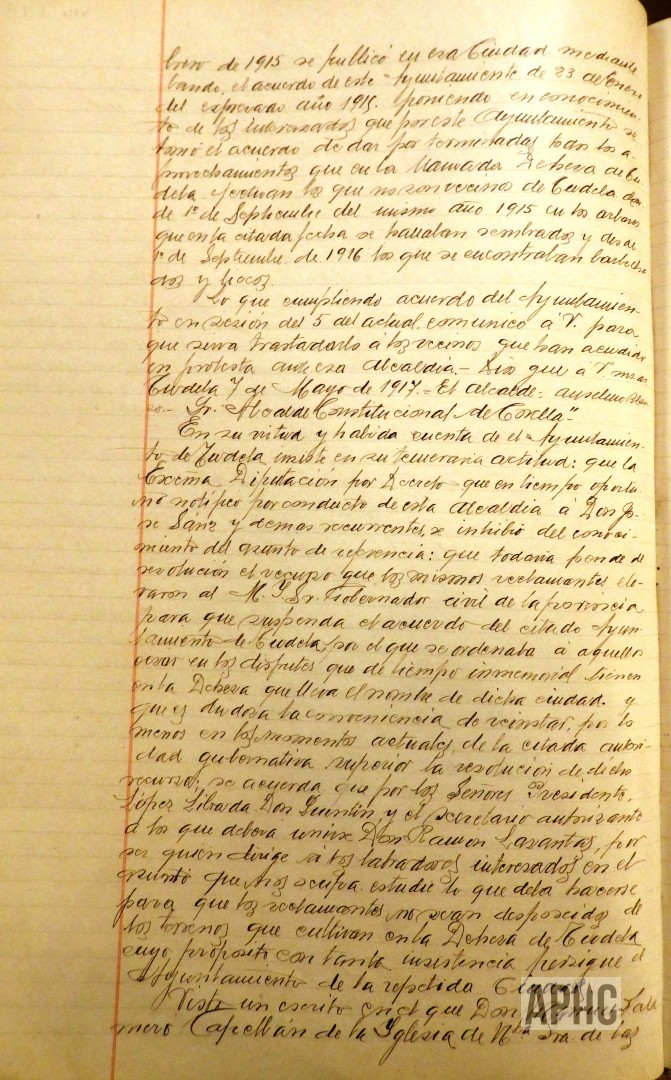 brero de 1915 se publicó en esa Ciudad mediante
bando, el acuerdo de este Ayuntamiento de 23 de Enero
del expresado año 1915. poniendo en conocimien-
to de los interesados que por este Ayuntamiento se
tomó el acuerdo de dar por terminados todos los a-
provechamientos que en la llamada Dehesa de Tu
dela efectuan los que no son vecinos de Tudela des
de 1º de Septiembre del mismo año 1915 en los
que en la citada fecha se hallaban sembrados y desde
1º de Septiembre de 1916 los que se encontraban barbecha
dos y liecos.
Lo que cumpliendo acuerdo del Ayuntamien-
to en sesión del 5 del actual comunico á V. para
que sirva trasladarlo á los vecinos que han acudido
en protesta ante esa Alcaldia.- Dios que á V. m. a.
Tudela 7 de Mayo de 1917.- El Alcalde- Anselmo
Sr. Alcalde Constitucional de Corella"
En su virtud y habida cuenta de el Ayuntamien-
to de Tudela insiste en su temeraria actitud: que la
Excma Diputación por Decreto que en tiempo oportu
no notificó por conducto de esta Alcaldia á Don Jo-
se Sáinz y demas recurrentes, se inhibió del conoci-
miento del asunto de referencia: que todavia pende de
resolución el recurso que los mismos reclamantes ele-
varon al M. I. Sr. Gobernador civil de la provincia
para que suspenda el acuerdo del citado Ayun-
tamiento de Tudela, por el que se ordenaba á aquellos
cesar en los disfrutes que de tiempo inmemorial tienen
en la Dehesa que lleva el nombre de dicha ciudad. y
que es dudosa la conveniencia de reinstar, por lo
menos en los momentos actuales, de la citada autori-
dad gubernativa superior la resolución de dicho
recurso; se acuerda que por los Señores Presidente,
López Librada Don Quintin, y el secretario autorizante
á los que deberá unirse Don Ramon Lasantas, por
ser quien dirige á los labradores interesados en el
asunto que nos ocupa estudie lo que deba hacerse
para que los reclamantes no sean desposeidos de
los terrenos que cultivan en la Dehesa de Tudela
cuyo propósito con tanta insistencia persigue el
Ayuntamiento de la repetida Ciudad
Visto un escrito en el que Don
mero Capellán de la Iglesia de Ntra Sra. de las
APHC